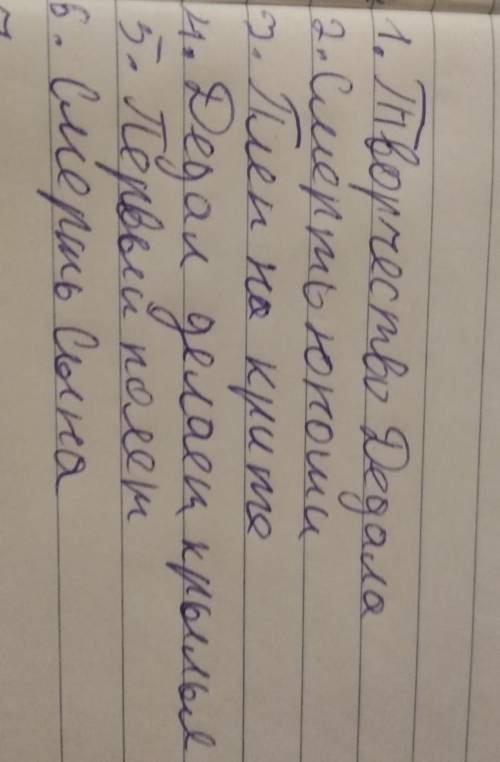 1. Творчество Дедала
2. Смерть юноши
3. Плен на крите
4. Дедал делает крылья
5. Первый полет
6. Смерть Сына
7